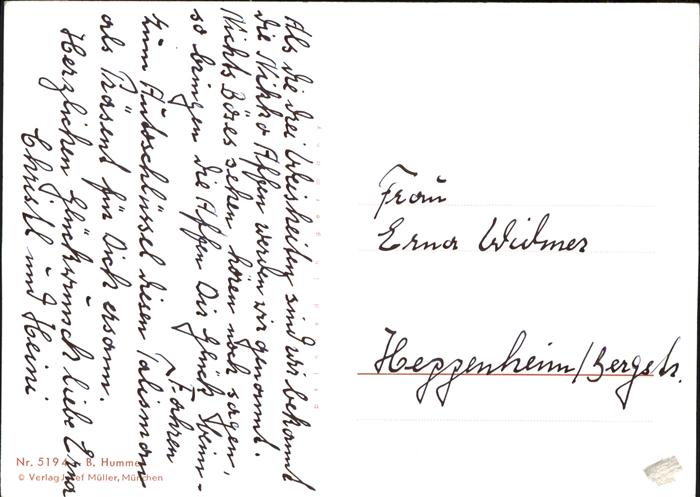 Als die drei Weisheiten sind wir bekannt
die Nikko Affen werden wir genannt.
Nichts Böses sehen, hören noch sagen,
so bringen die Affen Dir Glück beim-
Fahren
Zum Autoschlüssel diesen Talisman
als Präsent für Dich ersann.
Herzlichen Glückwunsch liebe Erna
Christl und Heini
Frau
Erna Widmer
Heppenheim/Bergstr.
Nr. 5194 B. Hummel
© Verlag Josef Müller, München